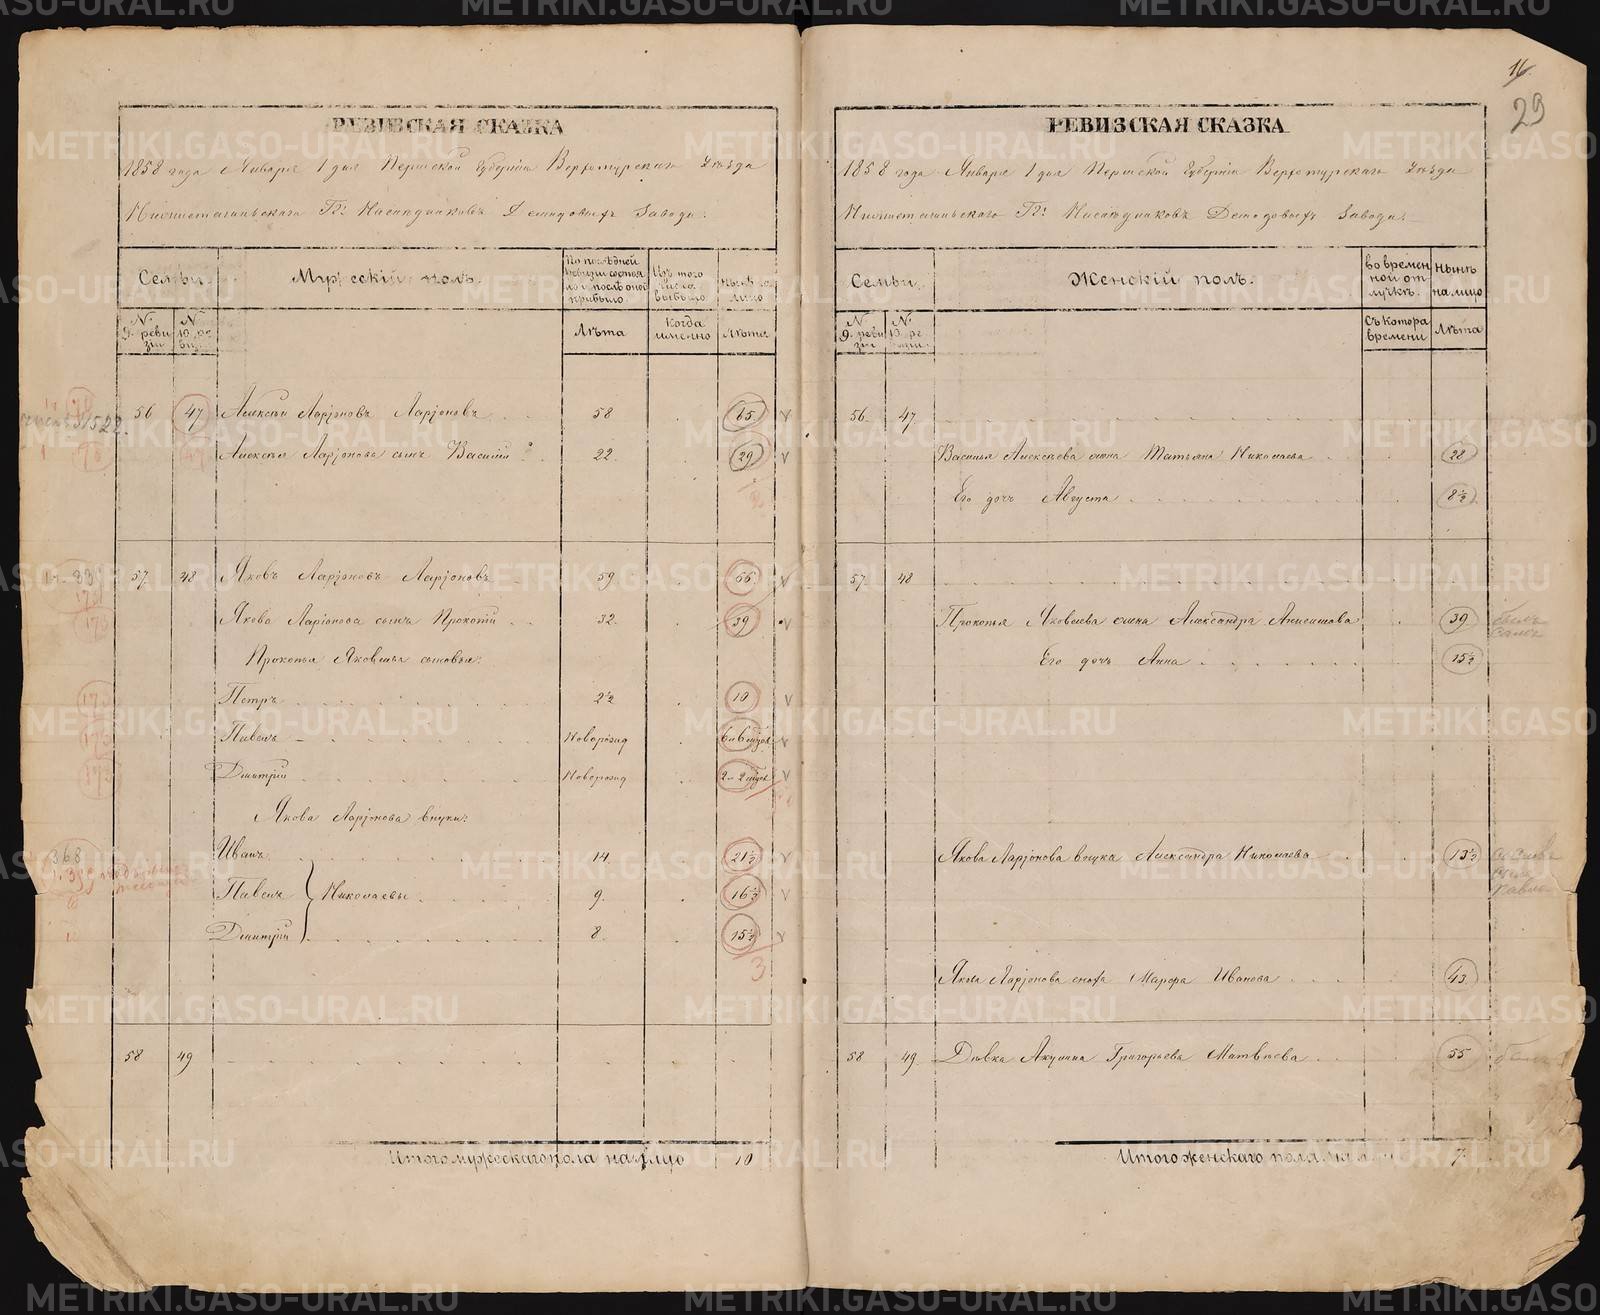 METRIKI.GASO-URAL.RU
16
29
РЕВИЗСКАЯ СКАЗКА
1858 года Января 1 дня Пермской Губерніи Верхотурскаго Уѣзда
Нижнетагильскаго Гг: Наслѣдниковъ Демидовыхъ Завода:
Семьи. Мужескій полъ. По послѣдней ревизіи состояло и послѣ оной прибыло. Изъ того числа выбыло Нынѣ на лицо
№ 9. ревизіи № 10. ревиз. Лѣта Когда именно Лѣта.
56 47 Алексѣй Ларіоновъ Ларіоновъ 58 65
Алексѣя Ларіонова сынъ Василій 22. 29
2
57. 48 Яковъ Ларіоновъ Ларіоновъ 59 66
Якова Ларіонова сынъ Прокопій 32. 39
173
Прокопья Яковлева сыновья:
173 Петръ 2½ 10
173 Павелъ Новорожд
173 Дмитрій Новорожд
Якова Ларіонова внуки:
368 Иванъ 14. 21½
Павелъ } Николаевы 9. 16½
Дмитрій 8. 15½
3
58 49
Итого мужескаго пола на лицо 10
РЕВИЗСКАЯ СКАЗКА
1858 года Января 1 дня Пермской Губерніи Верхотурскаго Уѣзда
Нижнетагильскаго Гг: Наслѣдниковъ Демидовыхъ Завода:
Семьи. Женскій полъ. во временной отлучкѣ. Нынѣ на лицо
№ 9. ревизіи № 10. ревизіи Съ котора времени Лѣта
56. 47.
Василья Алексѣева жена Татьяна Николаева 28
Его дочь Августа 8½
57. 48
Прокопья Яковлева жена Александра Анисимова 39
Его дочь Анна 15½
Якова Ларіонова внучка Александра Николаева 13½
Якова Ларіонова сноха Марфа Иванова 43
58 49. Дѣвка Акулина Григорьева Матвѣева 55
Итого женскаго пола на лицо 7.